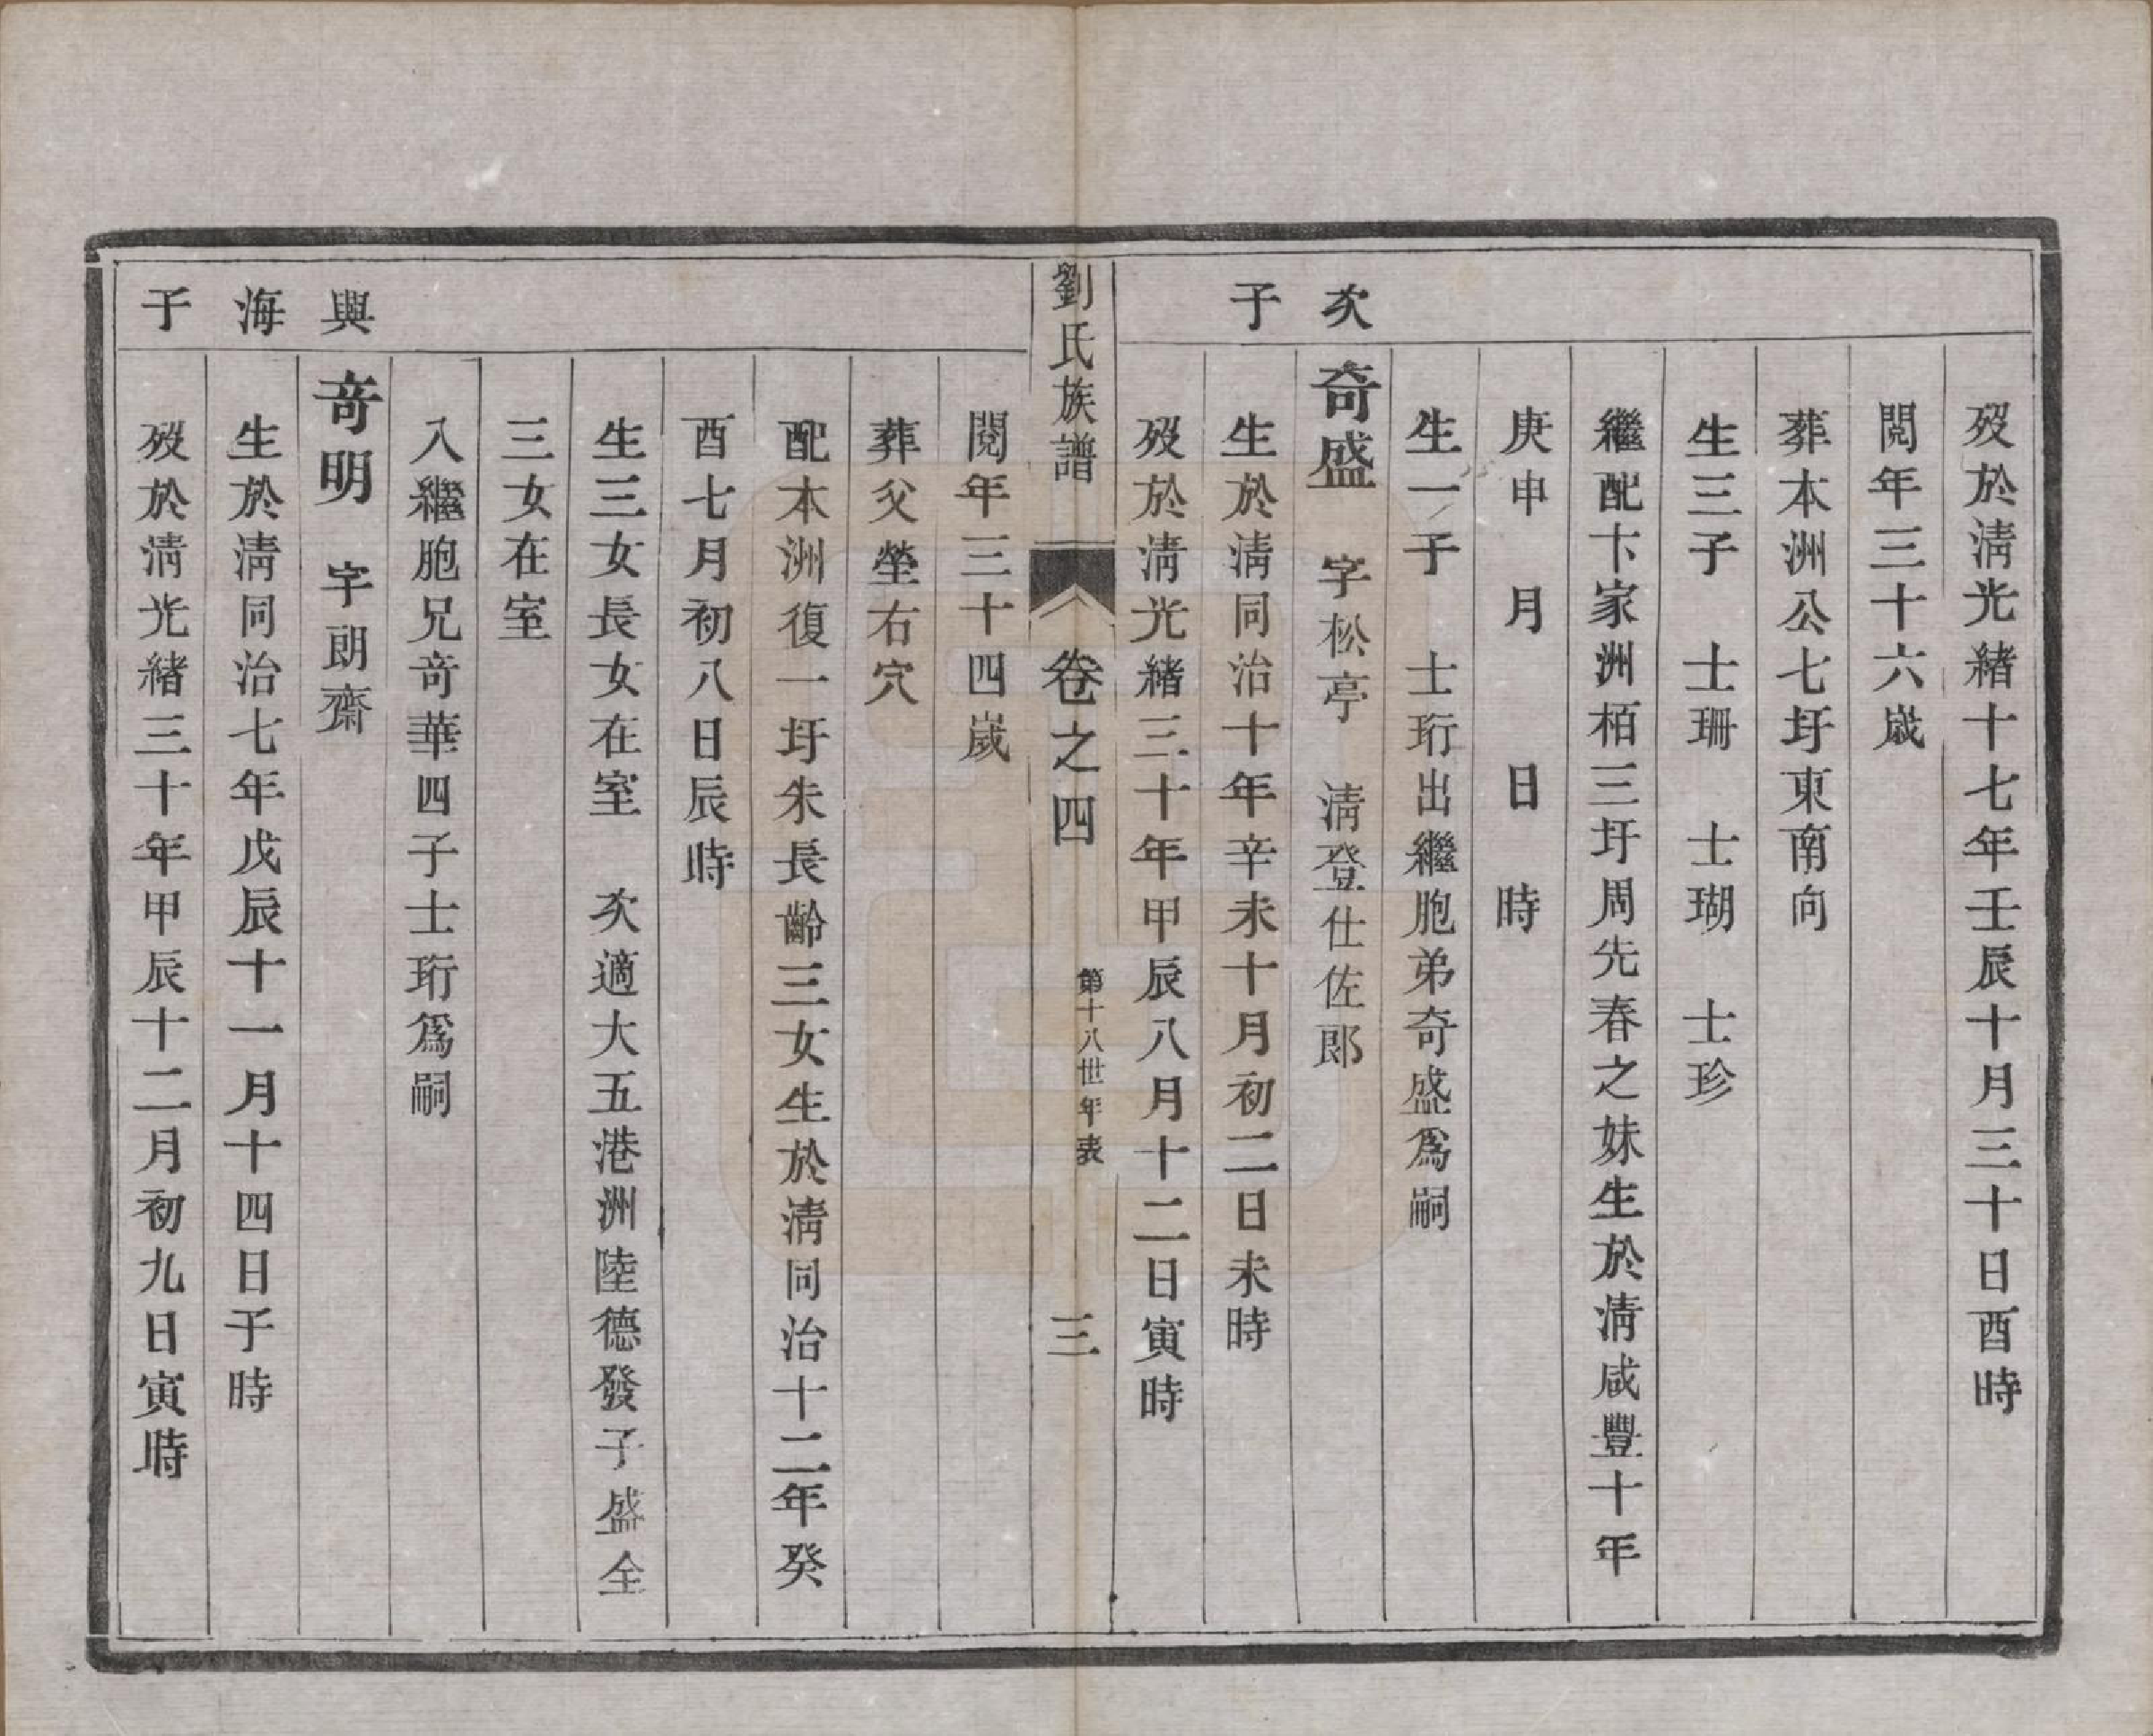 歿於淸光緖十七年壬辰十月三十日酉時
閱年三十六歲
葬本洲公七圩東南向
生三子　士珊　士瑚　士珍
繼配卞家洲栢三圩周先春之妹生於淸咸豐十年
庚申　月　　日　時
生一子　士珩出繼胞弟奇盛爲嗣
次子
奇盛　字松亭　淸登仕佐郎
生於淸同治十年辛未十月初二日未時
歿於淸光緖三十年甲辰八月十二日寅時
劉氏族譜　卷之四　第十八世年表　三
閱年三十四歲
葬父塋右穴
配本洲復一圩朱長齡三女生於淸同治十二年癸
酉七月初八日辰時
生三女長女在室　次適大五港洲陸德發子盛全
三女在室
入繼胞兄奇華四子士珩爲嗣
與海子
奇明　字朗齋
生於淸同治七年戊辰十一月十四日子時
歿於淸光緖三十年甲辰十二月初九日寅時